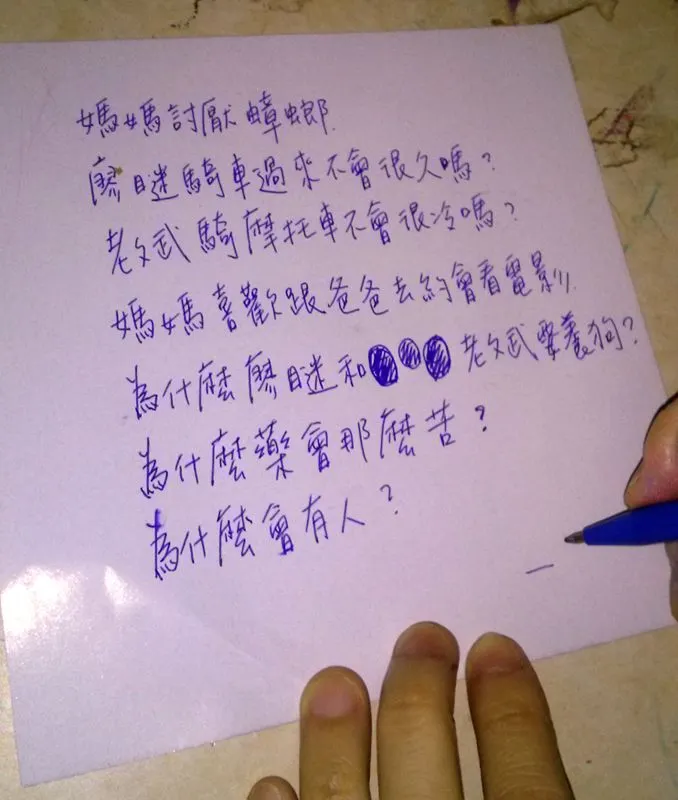 媽媽討厭蟑螂.
廖瞇騎車過來不會很久嗎?
老武騎摩托車不會很冷嗎?
媽媽喜歡跟爸爸去約會看電影.
為什麼廖瞇和老武要養狗?
為什麼藥會那麼苦?
為什麼會有人?